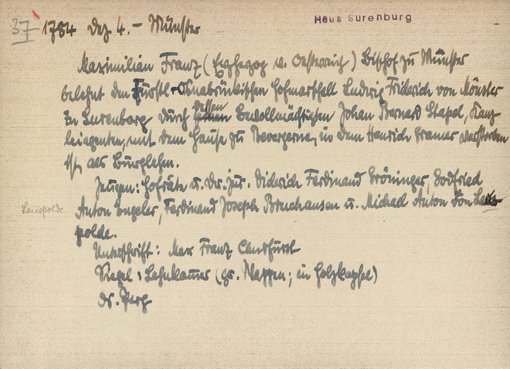 37 1784 Dez 4. – Münster
Haus Surenburg
Maximilian Franz (Erzherzog v. Oesterreich) Bischof zu Münster
belehnt den Fürstl. Osnabrückischen Hofmarschall Ludwig Friderich von
zu Surenborg durch dessen Bevollmächtigten Johan Bernard Stapel,
mit dem Hause zu Bevergerne, in dem Henrich Cramer verstorben
ist, als Burglehn.
Zeugen: Hofräte u. Dr. jur. Diderich Ferdinand Gröninger, Gotfried
Anton Ferdinand Joseph u. Michael Anton von
Leuopolde
polde.
Unterschrift: Max Franz Churfürst
Siegel: Lehnkamer (gr. Wappen; in Holzkapsel)
Or. Perg